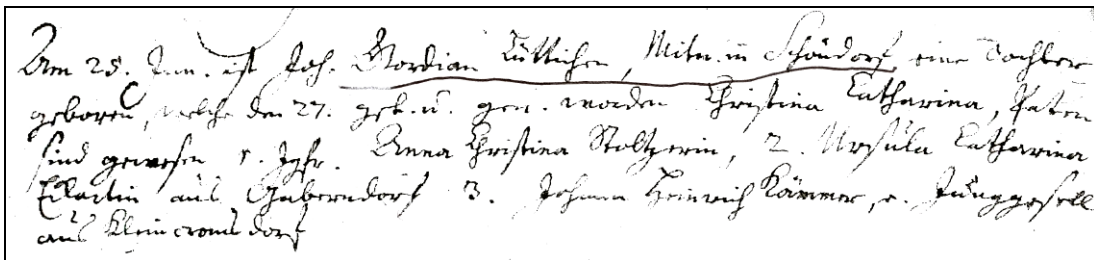 Am 25. Jun. ist Joh. Gordian Lüttichen, Mitn. in Schöndorf, eine Tochter
geboren, welche den 27. get. u. gen. worden Christina Catharina, Paten
sind gewesen 1. Jgfr. Anna Christina Stoltzerin, 2. Ursula Catharina
aus Gaberndorf 3. Johann Heinrich Kämmer, e. Junggesell
aus Kleincromsdorf